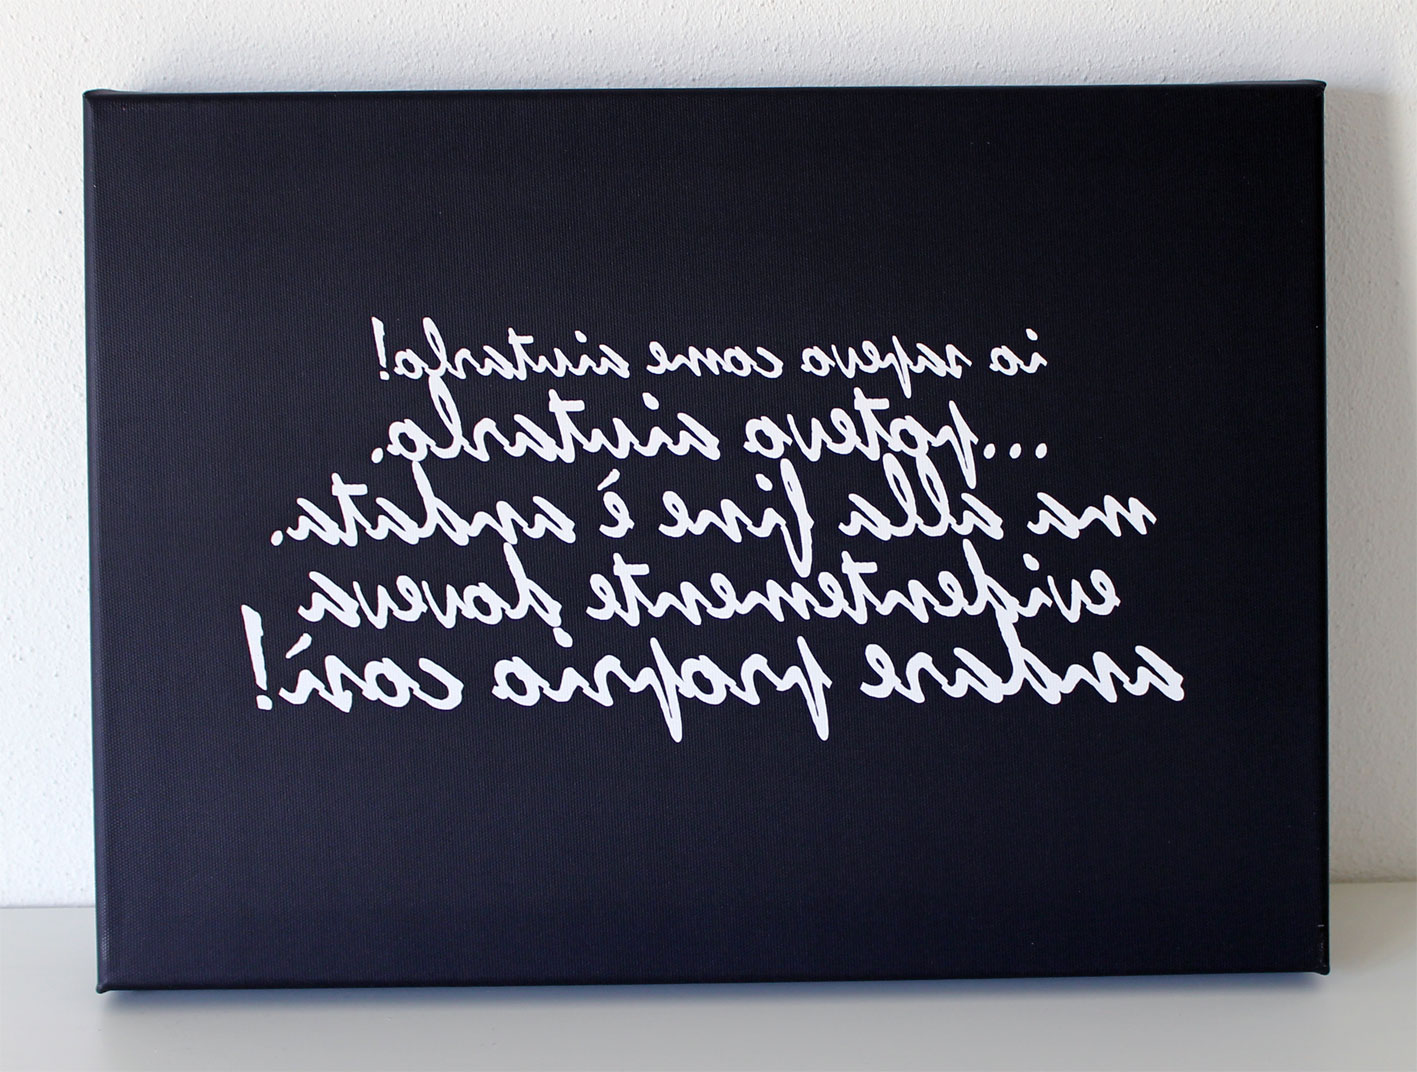 io sapevo come aiutarlo!
...potevo aiutarlo.
ma alla fine è andata.
evidentemente doveva
andare proprio così!